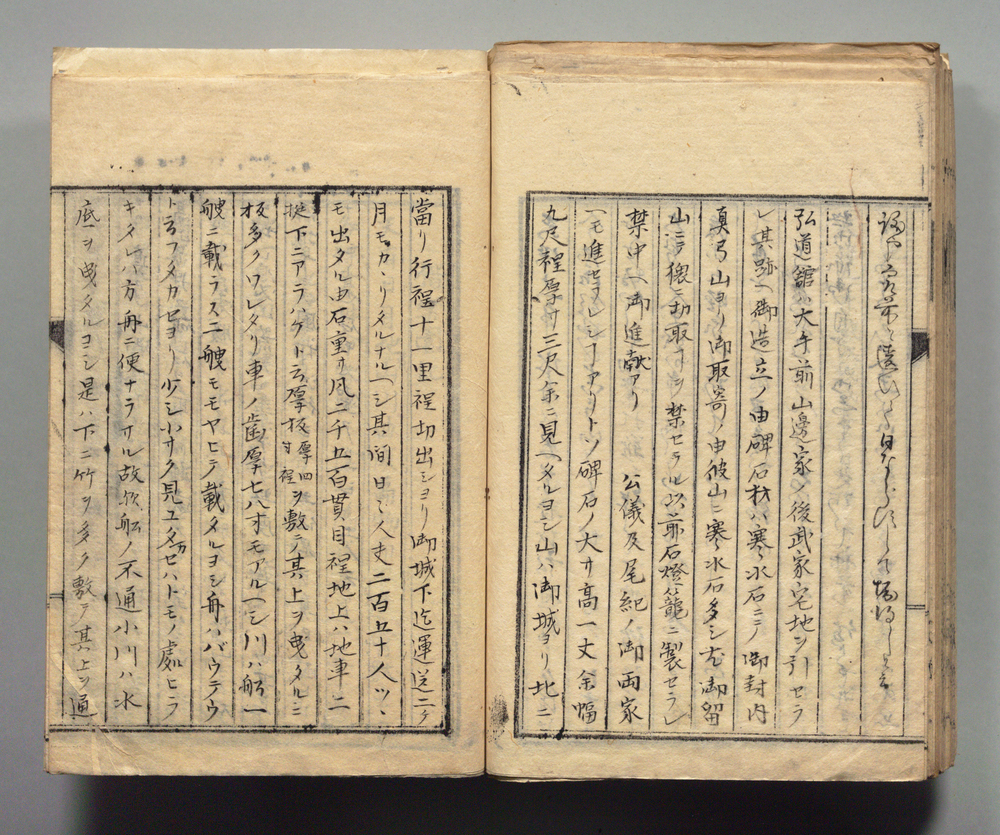 弘道館ハ大手前山邊家ノ後武家宅地ヲ引セラ
レ其跡ヘ御造立ノ由碑石材ハ寒水石ニテ御封内
真弓山ヨリ御取寄ノ由彼山ニ寒水石多シ尤御留
山ニテ猥ニ切取ヿヲ禁セラル以前石燈籠ニ製セラレ
禁中ヘ御進献アリ 公儀及尾紀ノ御両家
ヘモ進セラレシヿアリトソ碑石ノ大サ高一丈余幅
九尺程厚サ三尺余ニ見ヘタルヨシ山ハ御城ヨリ北ニ
當リ行程十一里程切出シヨリ御城下迄運送二ケ
月モカヽリタルナルヘシ其間日々人夫二百五十人ツヽ
モ出タル由石重サ凡二千五百貫目程地上ハ地車二
挺下ニアラハケト云厚板厚四寸程ヲ敷テ其上ヲ曳タルニ
板多クワレタリ車ノ歯厚七八寸モアルヘシ川ハ船一
艘ニ載ラス二艘モモヤヒテ載タルヨシ舟ハバウテウ
トテフタカセヨリ少シ小サク見ユタカセハトモノ處ヒラ
キタルハ方舟ニ便ナラサル故欤船ノ不通小川ハ水
底ヲ曳タルヨシ是ハ下ニ竹ヲ多ク敷テ其上ヲ通